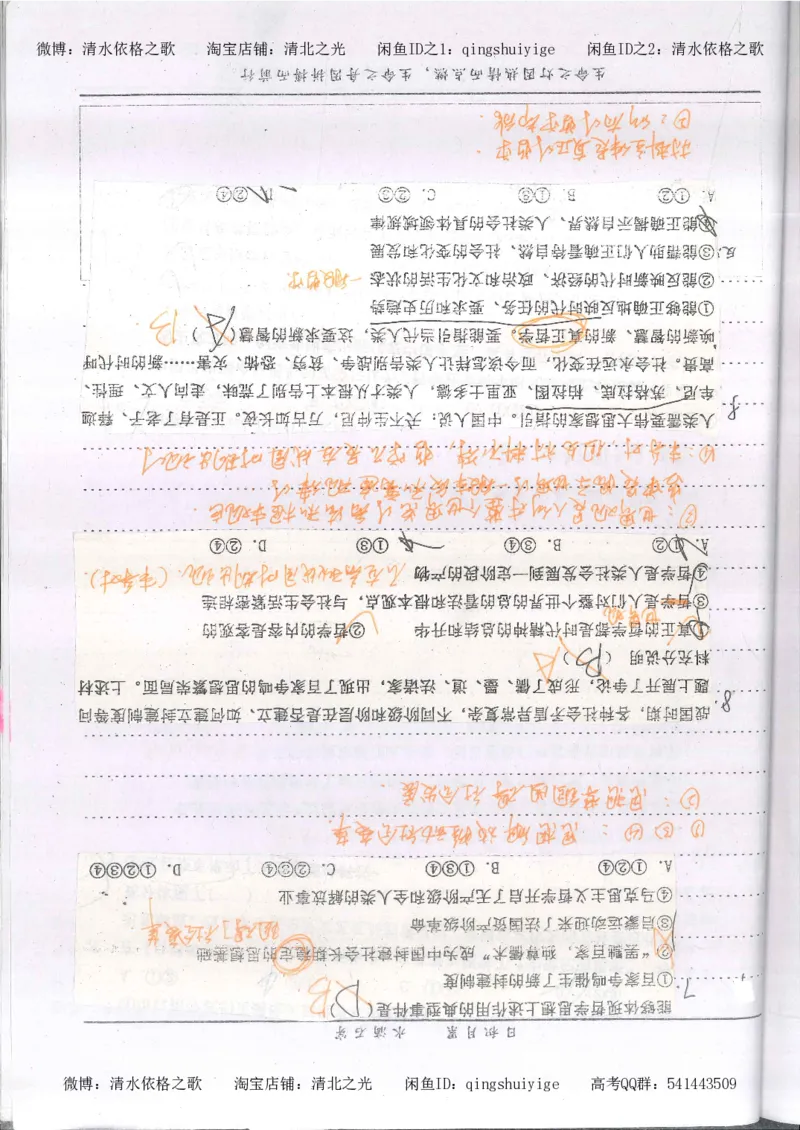 微博：清水依格之歌 淘宝店铺：清北之光 闲鱼ID之1：qingshuiyige 闲鱼ID之2：清水依格之歌
日积月累 水滴石穿
7. 能够体现哲学思想上述作用的典型事件是（D） B
①百家争鸣催生了新的封建制度
②“罢黜百家，独尊儒术”成为中国封建社会长期稳定的思想基础
③启蒙运动迎来了法国资产阶级革命
④马克思主义哲学开启了无产阶级和全人类的解放事业
A. ①②④ B. ①③④ C. ②③④ D. ①②③④
①③④：思想解放推动社会变革
②：思想禁锢阻碍社会发展
8. 战国时期，各种社会矛盾异常复杂，不同阶级和阶层在是否建立、如何建立封建制度等问
题上展开了争论，形成了儒、墨、道、法诸家，出现了百家争鸣的思想繁荣局面。上述材
料充分说明（B） A
①真正的哲学都是时代精神的总结和升华 ②哲学的内容是客观的
③哲学是人们对整个世界的总的看法和根本观点，与社会生活紧密相连
④哲学是人类社会发展到一定阶段的产物
A. ①② B. ③④ C. ①③ D. ②④
③：世界观是人们对整个世界总的看法和根本观点
9. 人类需要伟大思想家的指引。中国人说：天不生仲尼，万古如长夜。正是有了老子、释迦
牟尼、苏格拉底、柏拉图、亚里士多德，人类才从根本上告别了荒昧，走向人文、理性、
高贵。社会永远在变化，而今该怎样让人类告别战争、贫穷、恐怖、灾害……新的时代呼
唤新的智慧、新的真正哲学。要能指引当代人类，这要求新的智慧（A） B
①能够正确地反映时代的任务、要求和历史趋势
②能反映新时代的经济、政治和文化生活的状态
③能帮助人们正确看待自然、社会的变化和发展
④能正确揭示自然界、人类社会的具体领域规律
A. ①② B. ①③ C. ②③ D. ②④
材料主体是真正的哲学
②：所有的哲学都能
生命之灯因热情而点燃，生命之舟因拼搏而前行
微博：清水依格之歌 淘宝店铺：清北之光 闲鱼ID：qingshuiyige 高考QQ群：541443509